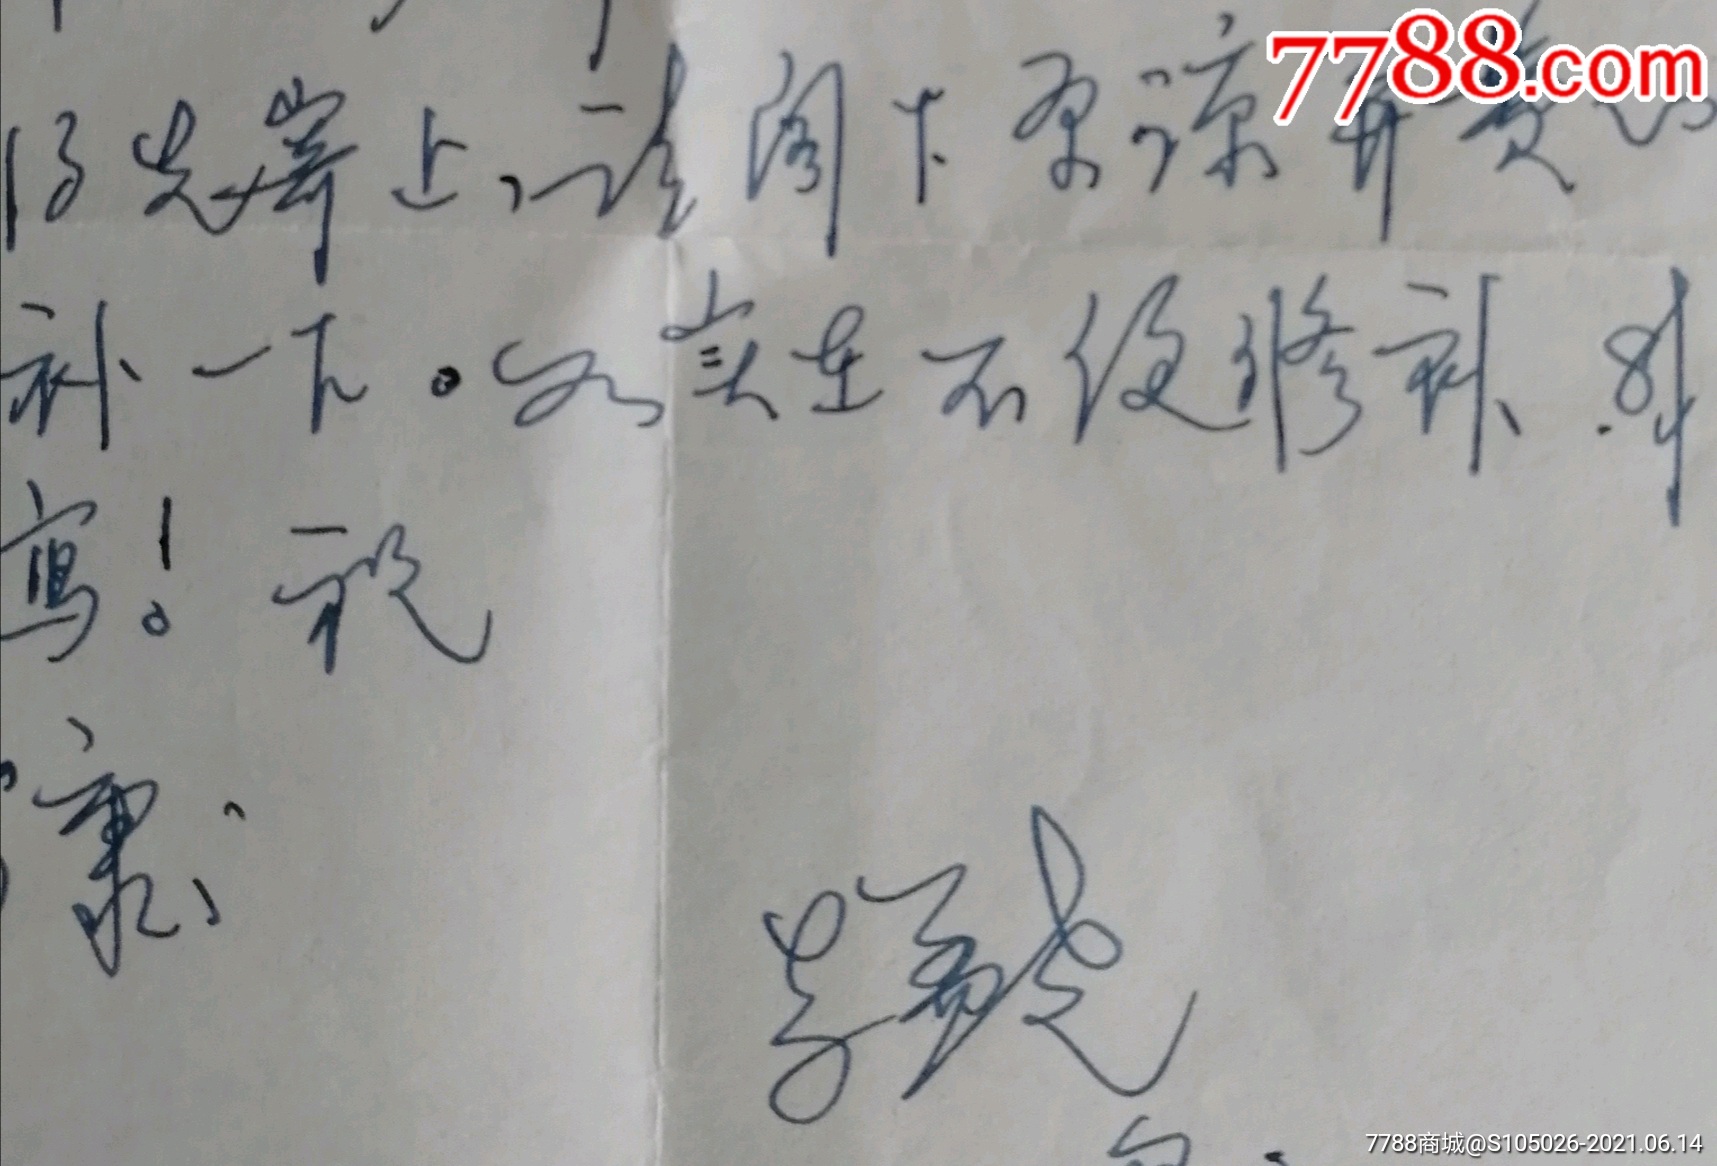 7788.com
仔先寄上，请阁下原谅并费心
补一下。如实在不便修补，
写！祝
康
7788商城@S105026-2021.06.14